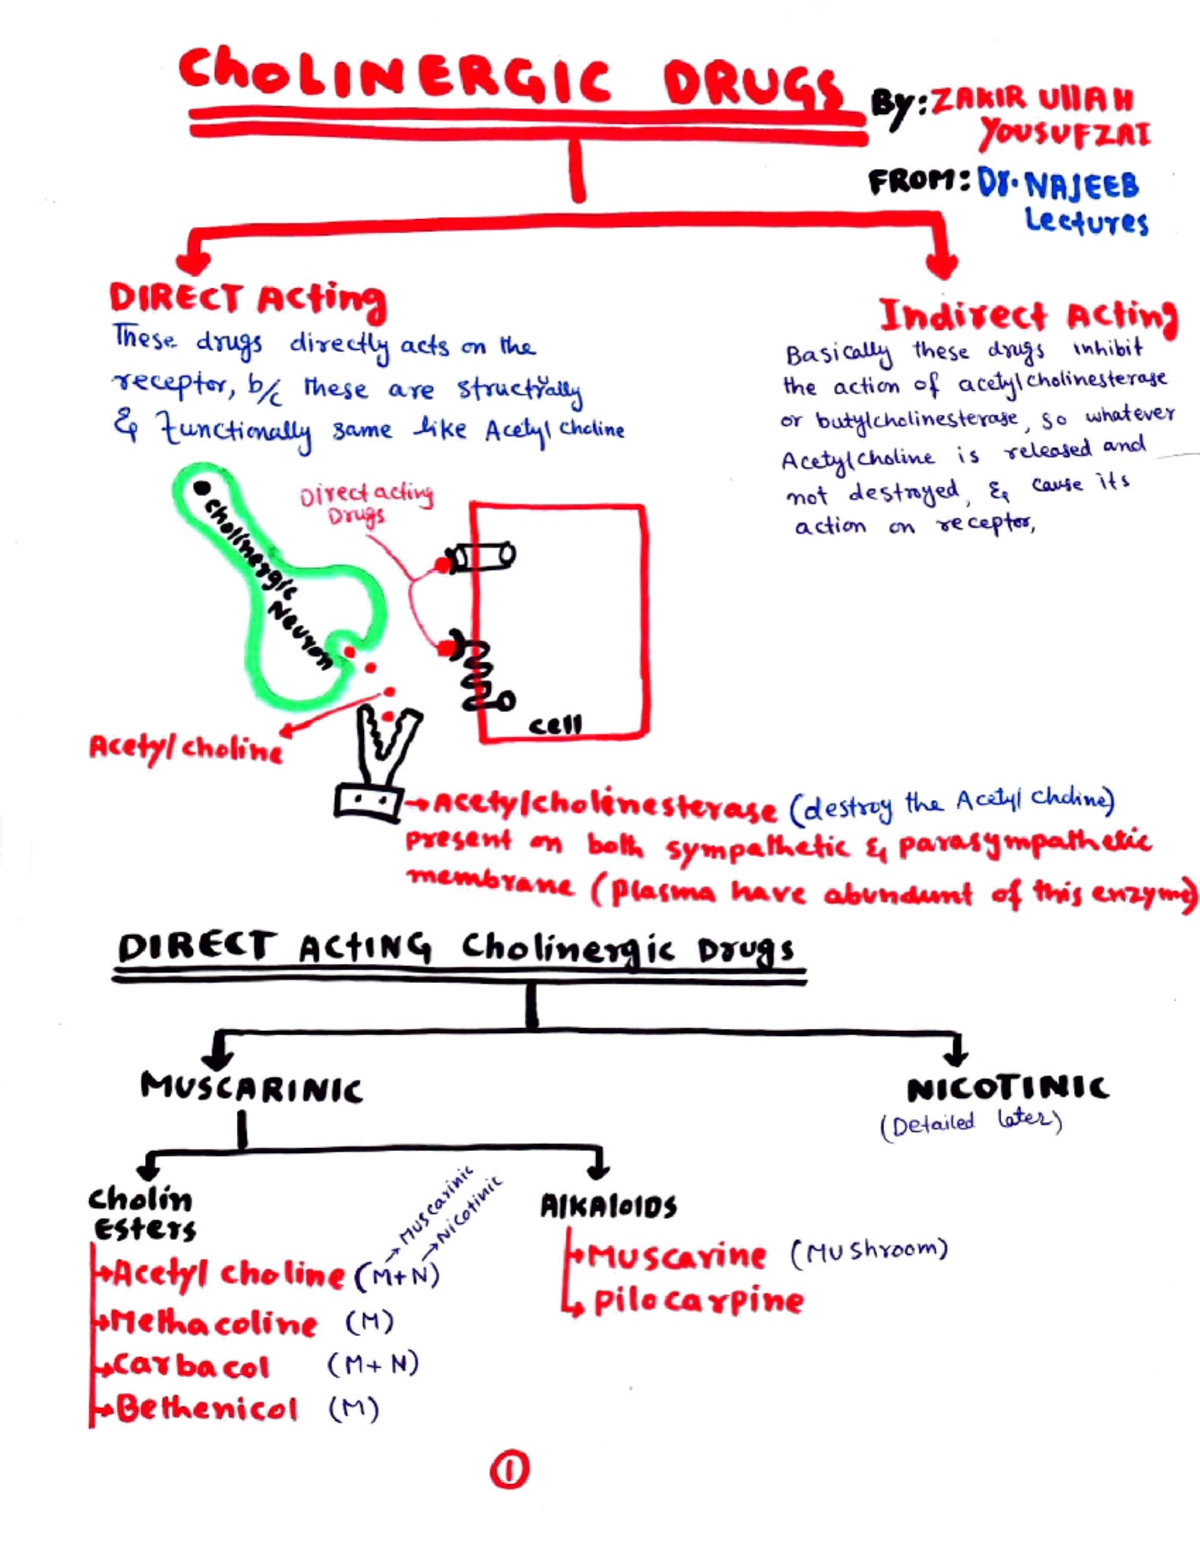 CHOLINERGIC DRUGS
By: ZAKIR UllAH
YOUSUFZAI
FROM: Dr. NAJEEB
Lectures
DIRECT Acting
These drugs directly acts on the
receptor, b/c these are structrally
& Functionally same like Acetyl choline
Indirect Acting
Basically these drugs inhibit
the action of acetylcholinesterase
or butylcholinesterase, so whatever
Acetylcholine is released and
not destroyed, & cause its
action on receptor,
Cholinergic Neuron
Direct acting
Drugs
cell
Acetylcholine
Acetylcholinesterase (destroy the Acetyl choline)
present on both sympathetic & parasympathetic
membrane (plasma have abundunt of this enzyme)
DIRECT ACTING Cholinergic Drugs
MUSCARINIC
NICOTINIC
(Detailed later)
Cholin
Esters
Muscarinic
Nicotinic
Acetyl choline (M+N)
Methacoline (M)
Carbacol (M+N)
Bethenicol (M)
AlKAloIDS
Muscarine (Mushroom)
Pilocarpine
1